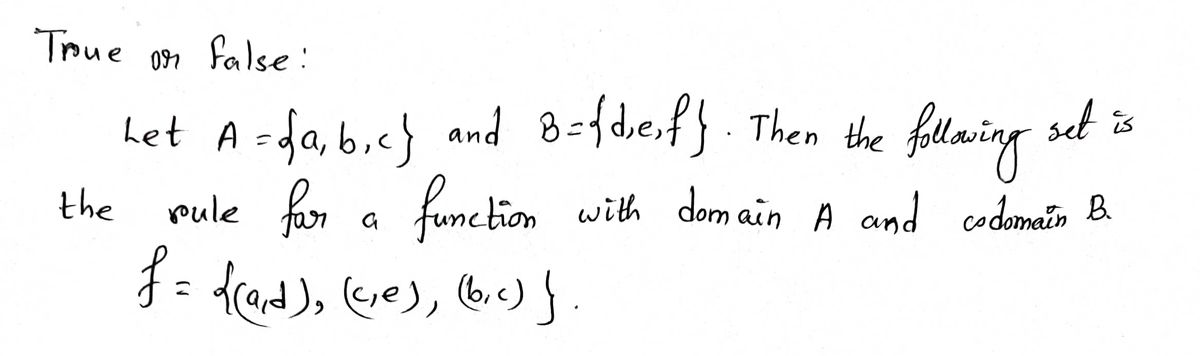 True or False:
Let A = {a, b, c} and B = {d, e, f}. Then the following set is
the rule for a function with domain A and codomain B.
f = {(a, d), (c, e), (b, c)}.